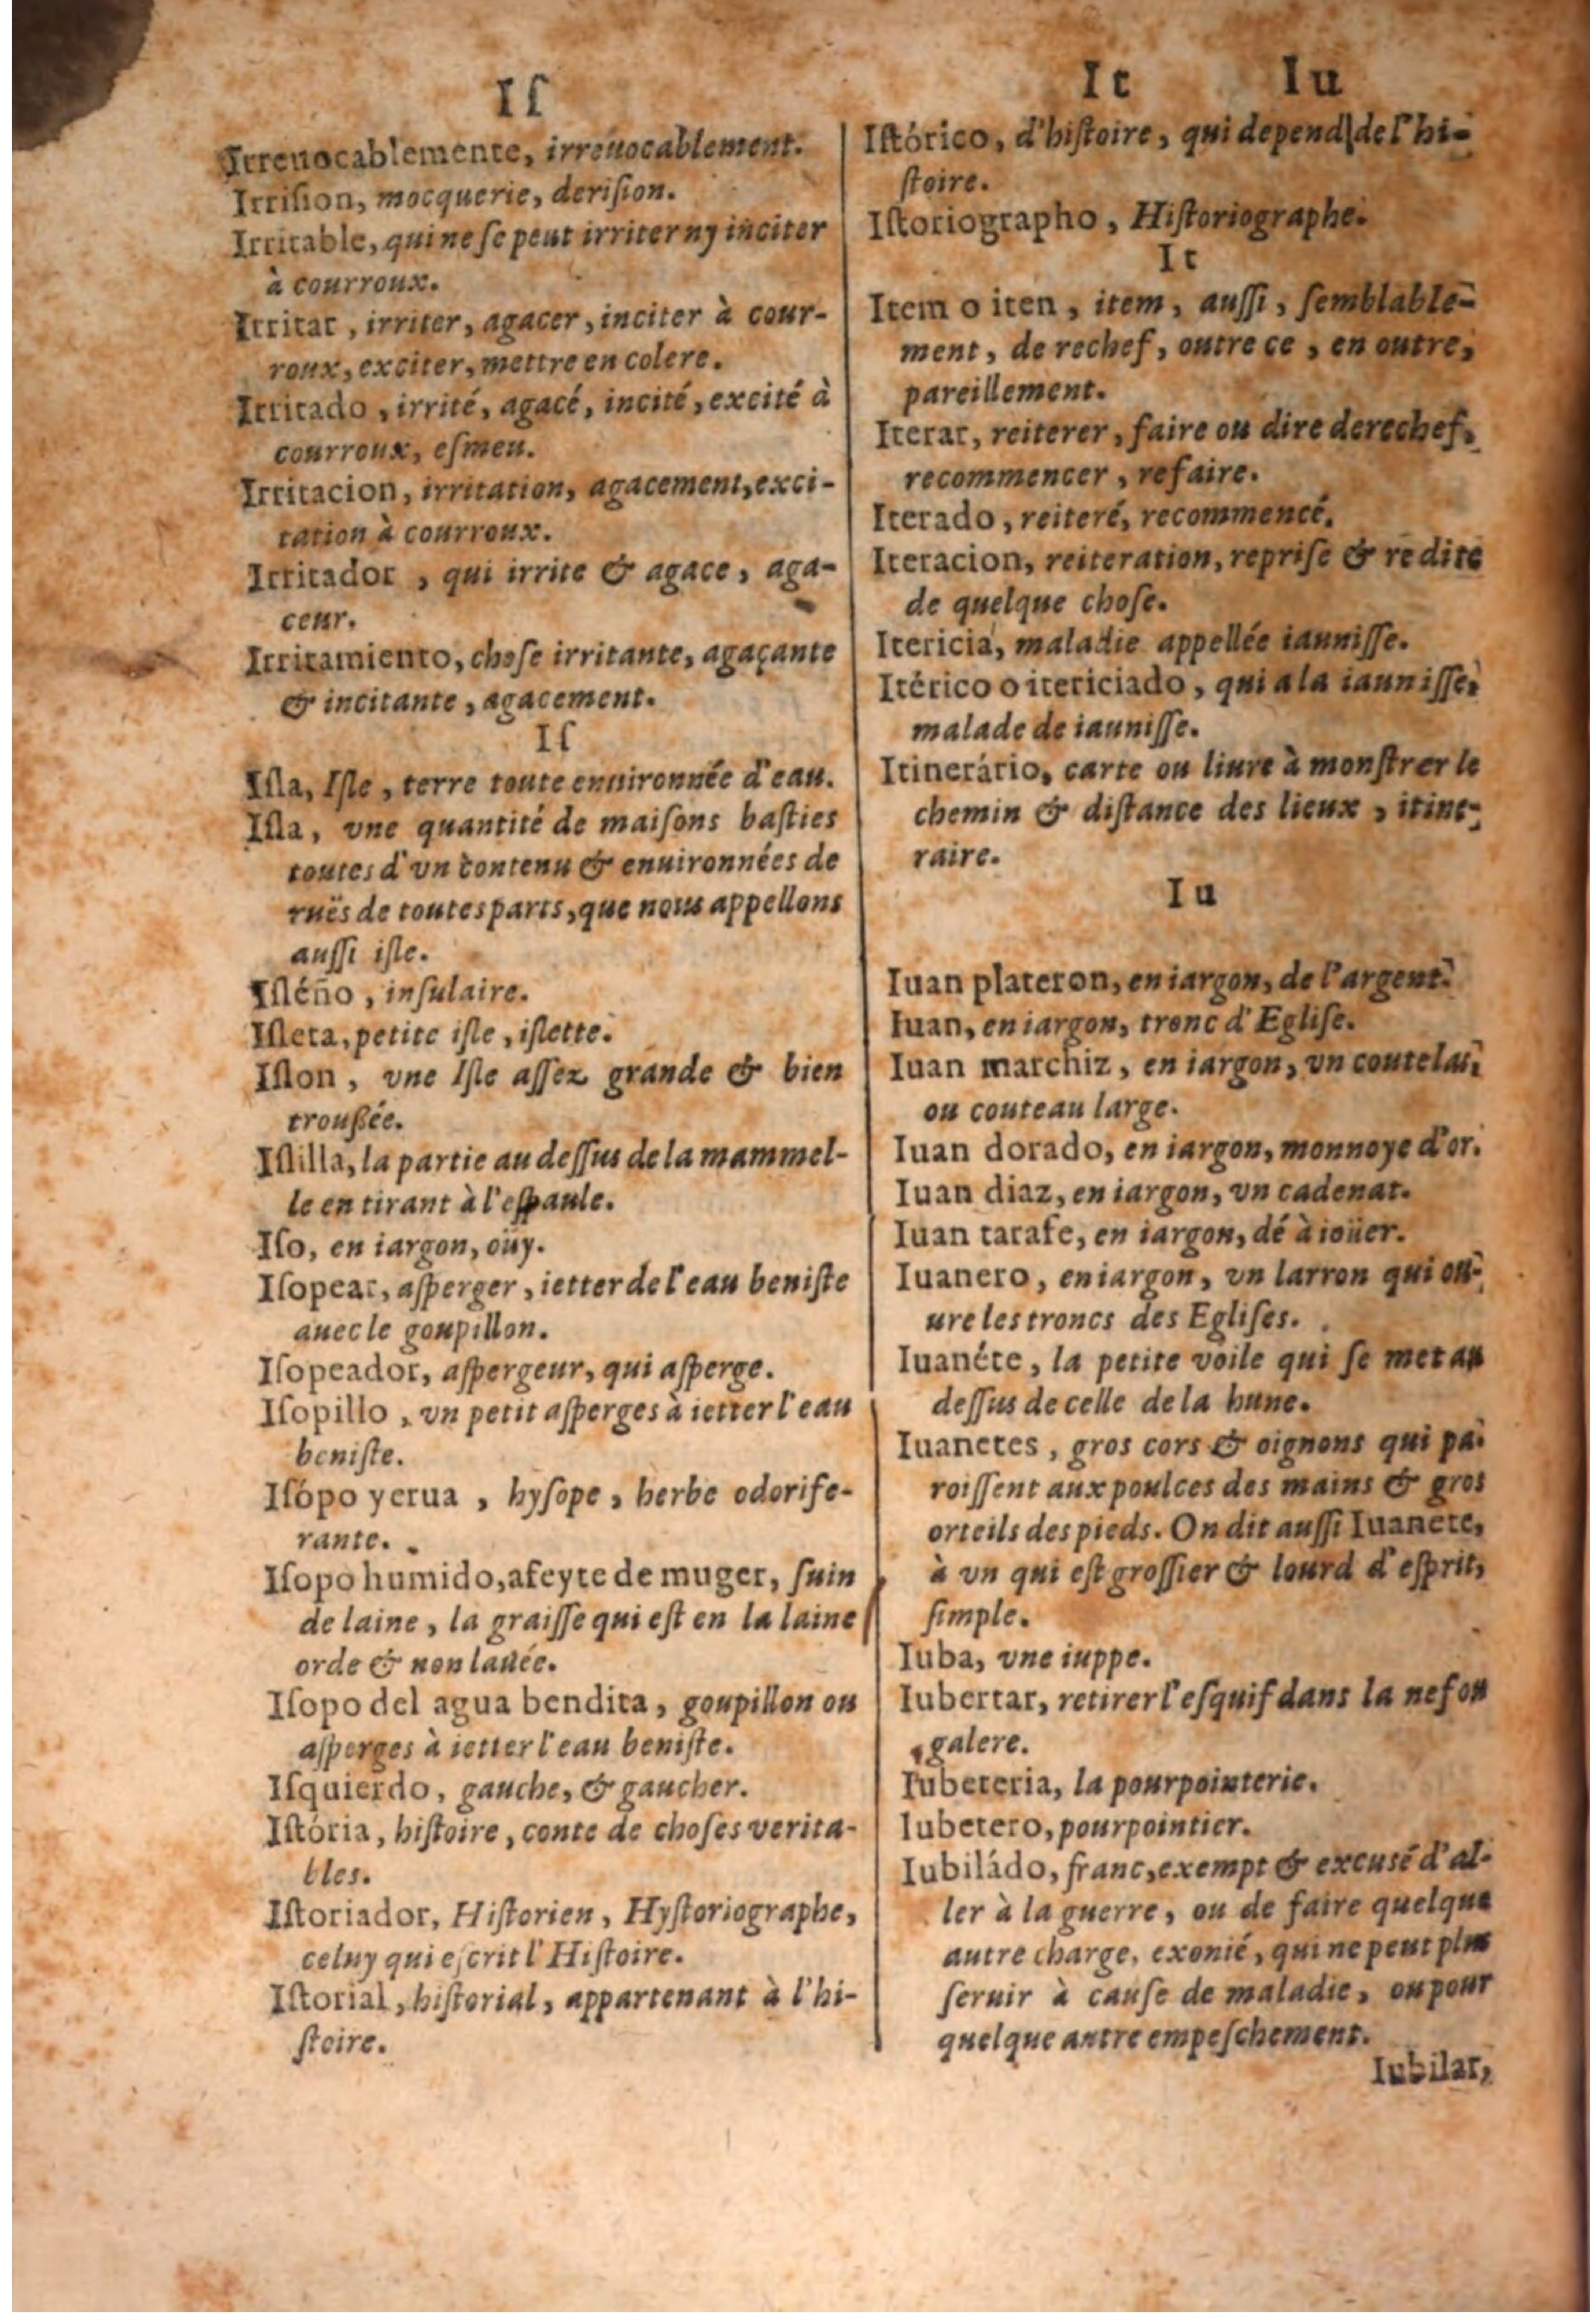 Iſ
Irreuocablemente, irreuocablement.
Irriſion, mocquerie, deriſion.
Irritable, qui ne ſe peut irriter ny inciter
à courroux.
Irritar, irriter, agacer, inciter à cour-
roux, exciter, mettre en colere.
Irritado, irrité, agacé, incité, excité à
courroux, eſmeu.
Irritacion, irritation, agacement, exci-
tation à courroux.
Irritador, qui irrite & agace, aga-
ceur.
Irritamiento, choſe irritante, agaçante
& incitante, agacement.
Iſ
Iſla, Iſle, terre toute enuironnée d'eau.
Iſla, vne quantité de maiſons baſties
toutes d'vn contenu & enuironnées de
ruës de toutes parts, que nous appellons
auſſi iſle.
Iſléño, inſulaire.
Iſleta, petite iſle, iſlette.
Iſlon, vne Iſle aſſez grande & bien
trouſsée.
Iſlilla, la partie au deſſus de la mammel-
le en tirant à l'eſpaule.
Iſo, en iargon, oüy.
Iſopear, aſperger, ietter de l'eau beniſte
auec le goupillon.
Iſopeador, aſpergeur, qui aſperge.
Iſopillo, vn petit aſperges à ietter l'eau
beniſte.
Iſópo yerua, hyſope, herbe odorife-
rante.
Iſopo humido, afeyte de muger, ſuin
de laine, la graiſſe qui eſt en la laine
orde & non lauée.
Iſopo del agua bendita, goupillon ou
aſperges à ietter l'eau beniſte.
Iſquierdo, gauche, & gaucher.
Iſtória, hiſtoire, conte de choſes verita-
bles.
Iſtoriador, Hiſtorien, Hyſtoriographe,
celuy qui eſcrit l'Hiſtoire.
Iſtorial, hiſtorial, appartenant à l'hi-
ſtoire.
It Iu
Iſtórico, d'hiſtoire, qui depend de l'hi-
ſtoire.
Iſtoriographo, Hiſtoriographe.
It
Item o iten, item, auſſi, ſemblable-
ment, de rechef, outre ce, en outre,
pareillement.
Iterar, reiterer, faire ou dire derechef,
recommencer, refaire.
Iterado, reiteré, recommencé.
Iteracion, reiteration, repriſe & redite
de quelque choſe.
Itericia, maladie appellée iauniſſe.
Itérico o itericiado, qui a la iauniſſe,
malade de iauniſſe.
Itinerário, carte ou liure à monſtrer le
chemin & diſtance des lieux, itine-
raire.
Iu
Iuan plateron, en iargon, de l'argent.
Iuan, en iargon, tronc d'Egliſe.
Iuan marchiz, en iargon, vn coutelas,
ou couteau large.
Iuan dorado, en iargon, monnoye d'or.
Iuan diaz, en iargon, vn cadenat.
Iuan tarafe, en iargon, dé à ioüer.
Iuanero, en iargon, vn larron qui ou-
ure les troncs des Egliſes.
Iuanéte, la petite voile qui ſe met au
deſſus de celle de la hune.
Iuanetes, gros cors & oignons qui pa-
roiſſent aux poulces des mains & gros
orteils des pieds. On dit auſſi Iuanete,
à vn qui eſt groſſier & lourd d'eſprit,
ſimple.
Iuba, vne iuppe.
Iubertar, retirer l'eſquif dans la nef ou
galere.
Iubeteria, la pourpointerie.
Iubetero, pourpointier.
Iubiládo, franc, exempt & excusé d'al-
ler à la guerre, ou de faire quelque
autre charge, exonié, qui ne peut plus
ſeruir à cauſe de maladie, ou pour
quelque autre empeſchement.
Iubilar,